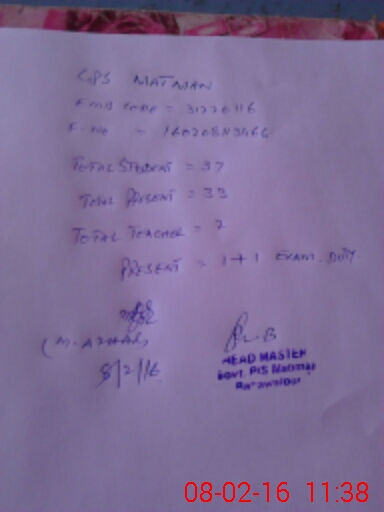 GPS MATMAN
EMIS CODE = 31220116
F. No =
TOTAL STUDENT = 37
TOTAL PRESENT = 33
TOTAL TEACHER = 2
PRESENT = 1+1 EXAM. DUTY.
(M. AZHAR)
8/2/16
HEAD MASTER
Govt. P/S
08-02-16 11:38